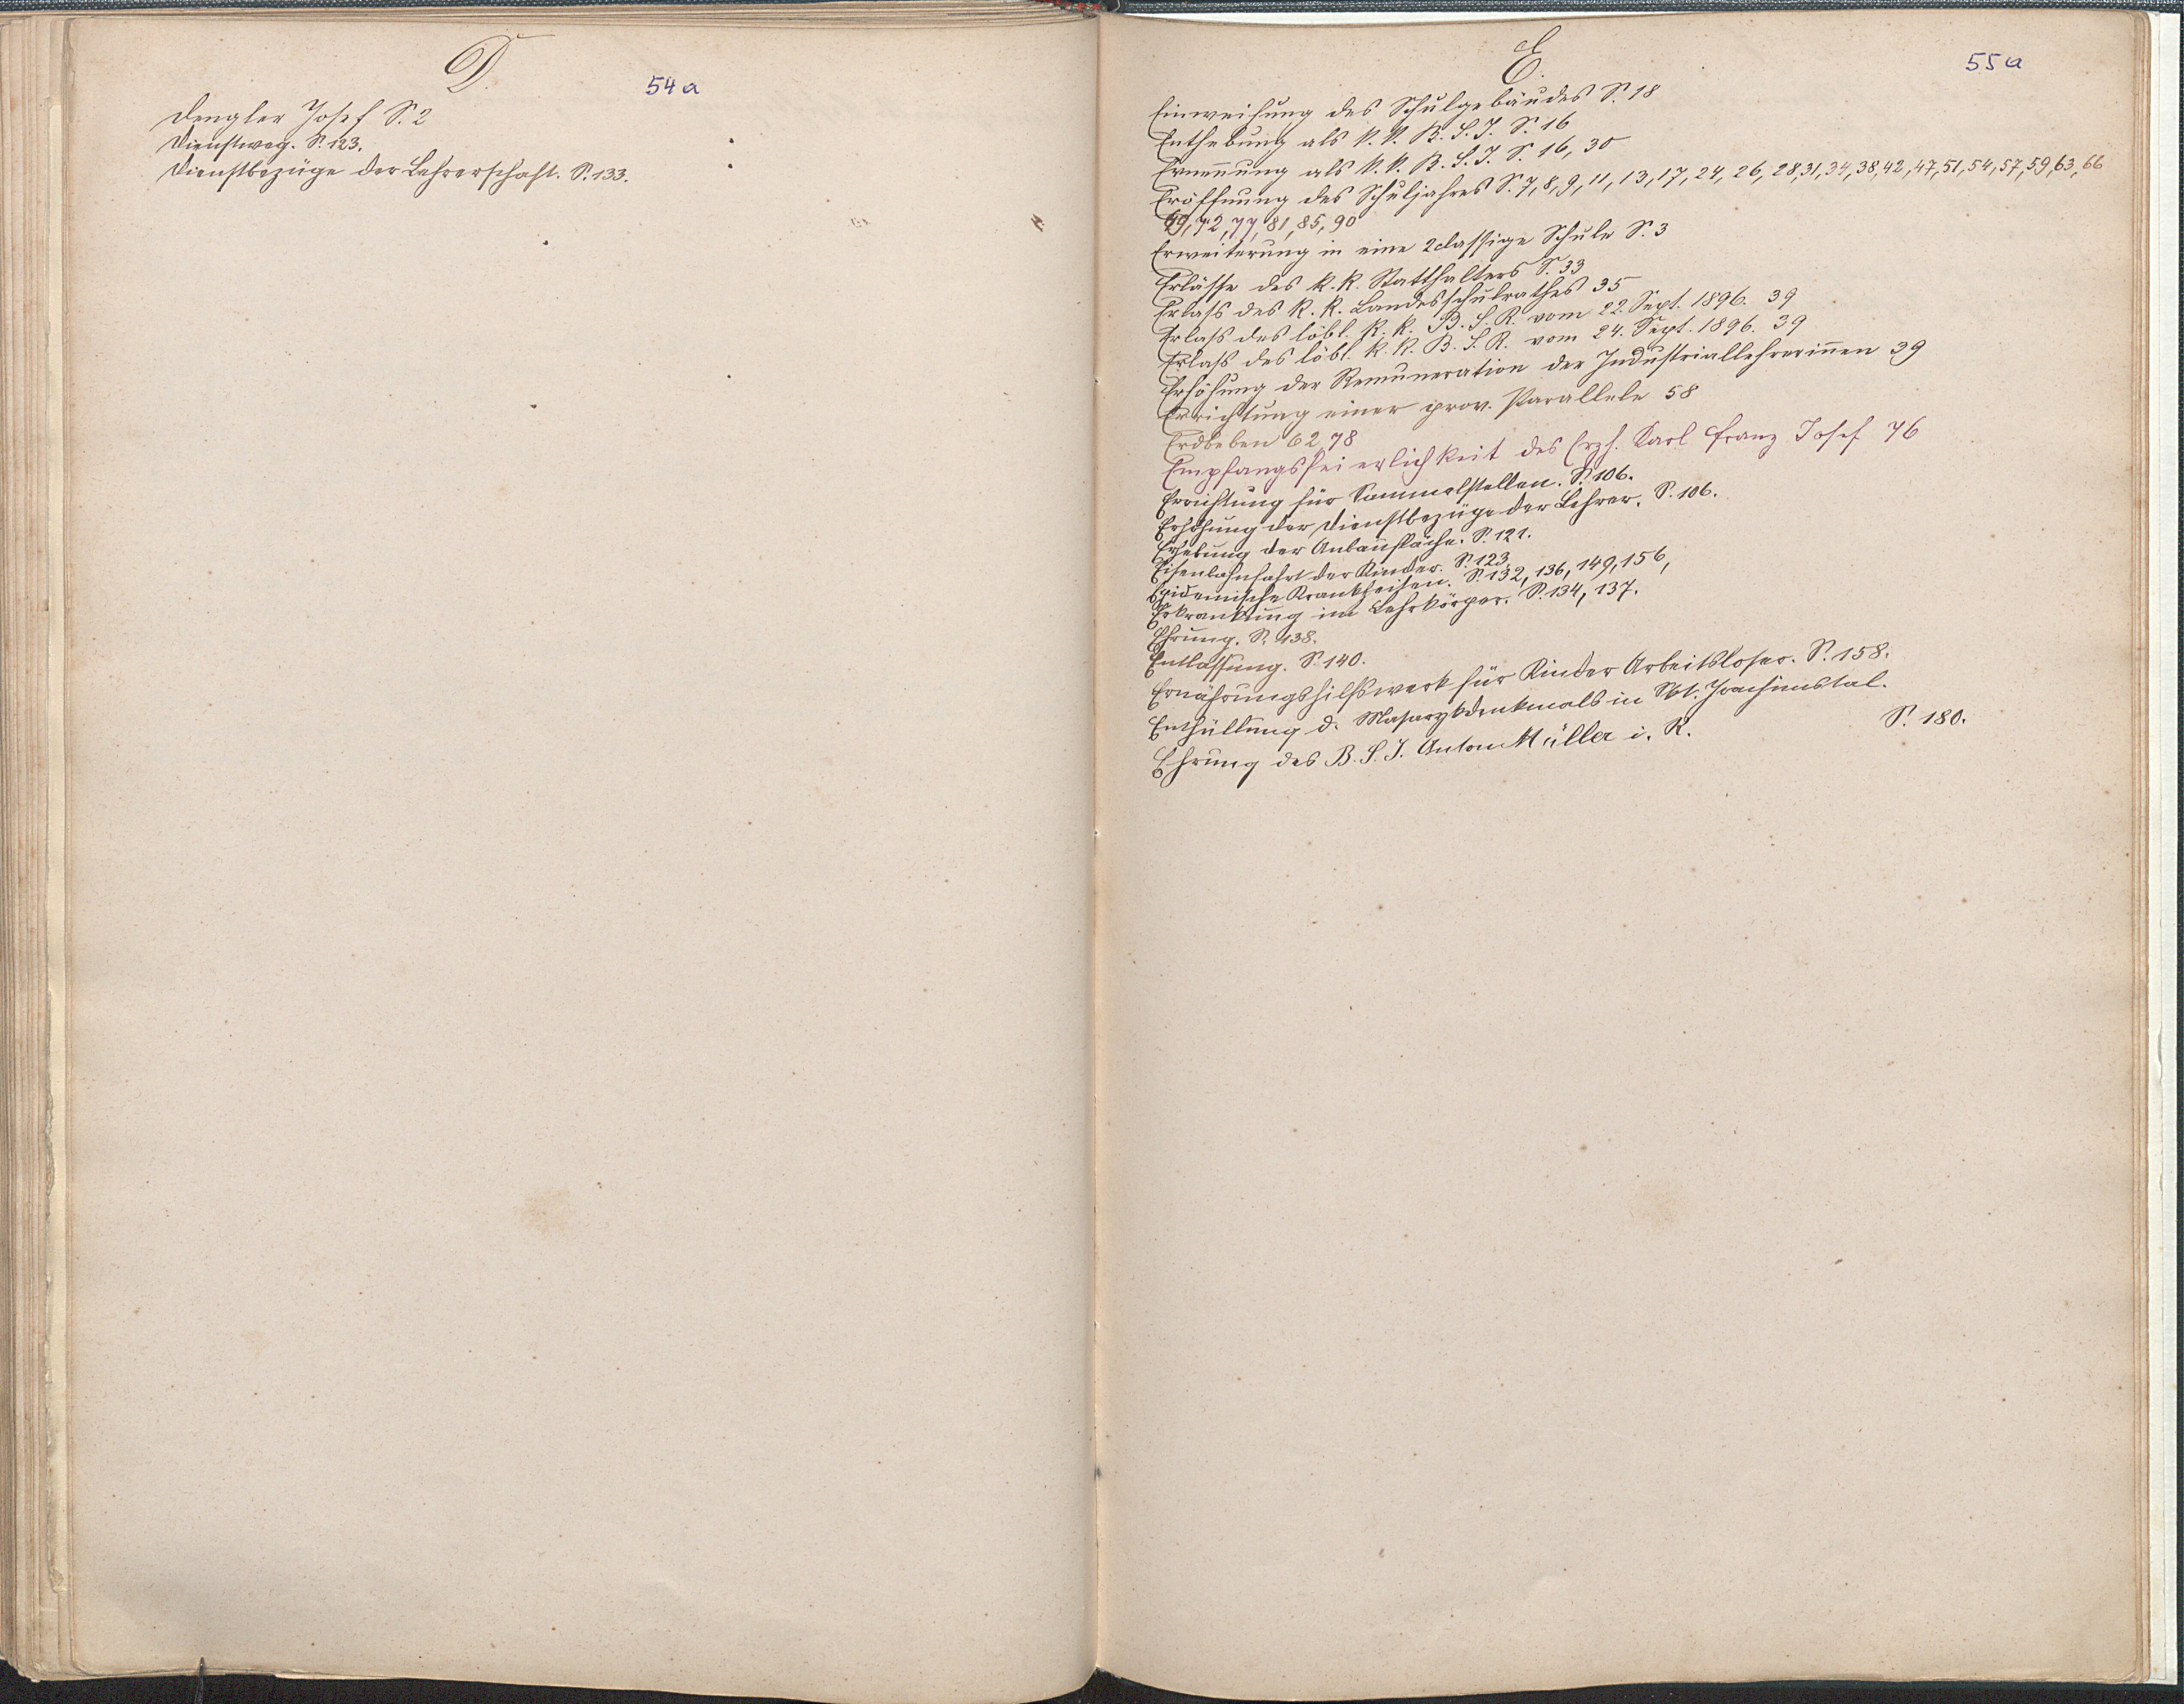 D.
54a
Dengler Josef S. 2
Dienstweg. S. 123.
Dienstbezüge der Lehrerschaft. S. 133.
E.
55a
Einweihung des Schulgebäudes S. 18
Enthebung als k. k. B. S. I. S. 16
Ernennung als k. k. B. S. I. S. 16, 30
Eröffnung des Schuljahres S. 7, 8, 9, 11, 13, 17, 24, 26, 28, 31, 34, 38, 42, 47, 51, 54, 57, 59, 63, 66
69, 72, 77, 81, 85, 90
Erweiterung in eine 2classige Schule S. 3
Erlässe des k. k. Statthalters S. 33
Erlaß des k. k. Landesschulrathes 35
Erlaß des löbl. k. k. B. S. R. vom 22. Sept. 1896. 39
Erlaß des löbl. k. k. B. S. R. vom 24. Sept. 1896. 39
Erhöhung der Remuneration der Industriallehrerinnen 39
Errichtung einer prov. Parallele 58
Erdbeben 62, 78
Empfangsfeierlichkeit des Erzh. Karl Franz Josef 76
Errichtung für Sammelstellen. S. 106.
Erhöhung der Dienstbezüge der Lehrer. S. 106.
Erhebung der Anbaufläche. S. 121.
Eisenbahnfahrt der Kinder. S. 123.
Epidemische Krankheiten. S. 132, 136, 149, 156,
Erkrankung im Lehrkörper. S. 134, 137.
Ehrung. S. 138.
Entlassung. S. 140.
Ernährungshilfswerk für Kinder Arbeitsloser. S. 158.
Enthüllung d. Masarykdenkmals in Skt. Joachimstal.
S. 180.
Ehrung des B. S. I. Anton Müller i. R.